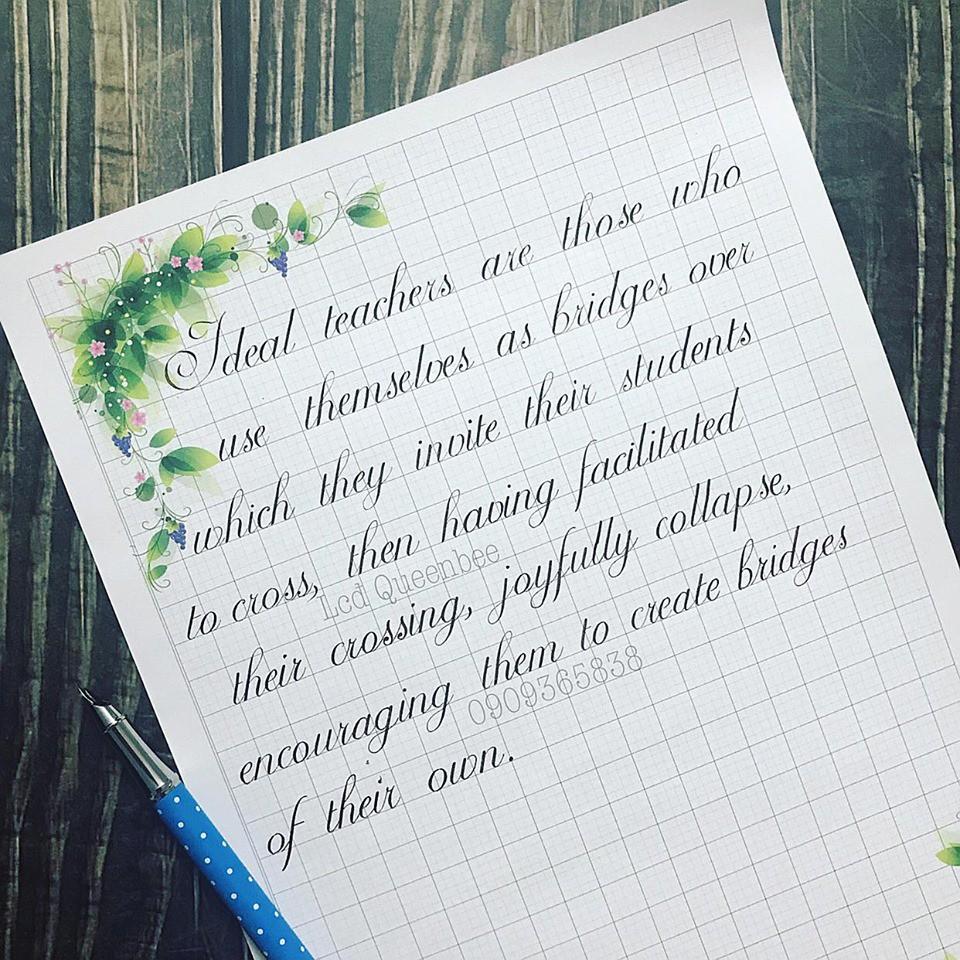 Ideal teachers are those who
use themselves as bridges over
which they invite their students
to cross, then having facilitated
Lcd Queenbee
their crossing, joyfully collapse,
encouraging them to create bridges
0909365838
of their own.